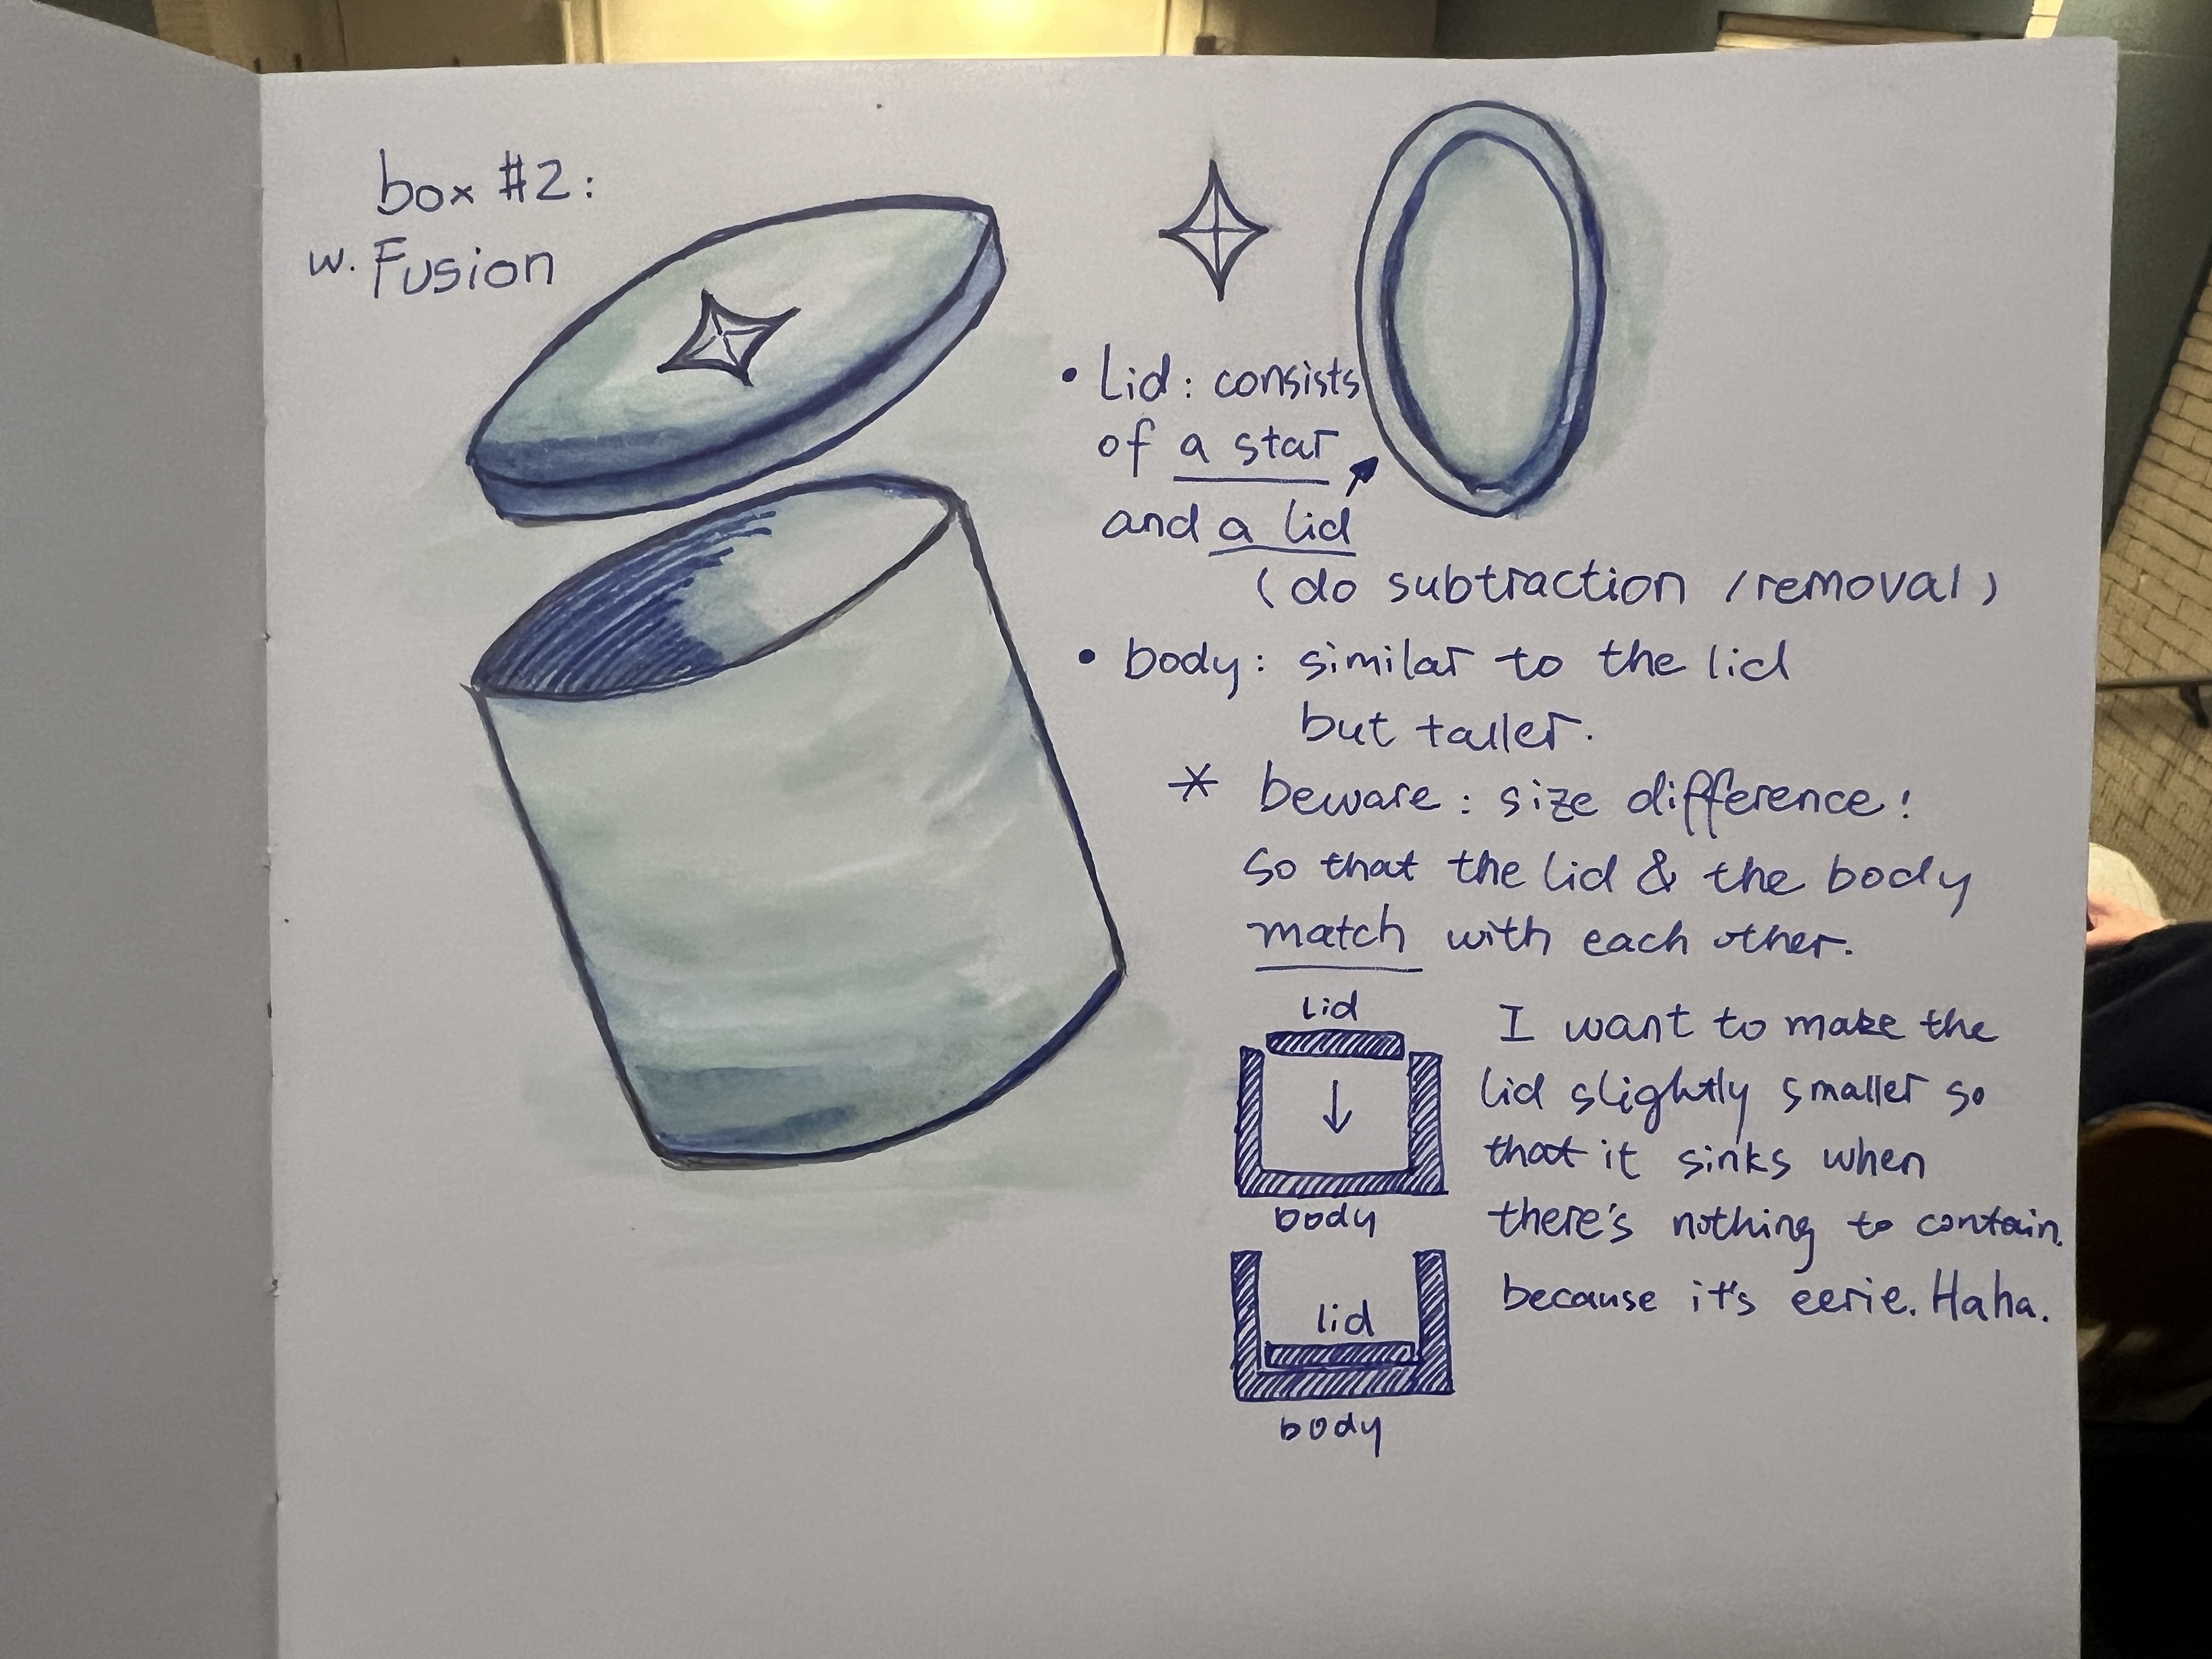 box #2:
w. Fusion
• Lid: consists
of a star
and a lid
(do subtraction / removal)
• body: similar to the lid
but taller.
* beware: size difference!
so that the lid & the body
match with each other.
lid
body
lid
body
I want to make the
lid slightly smaller so
that it sinks when
there's nothing to contain.
because it's eerie. Haha.